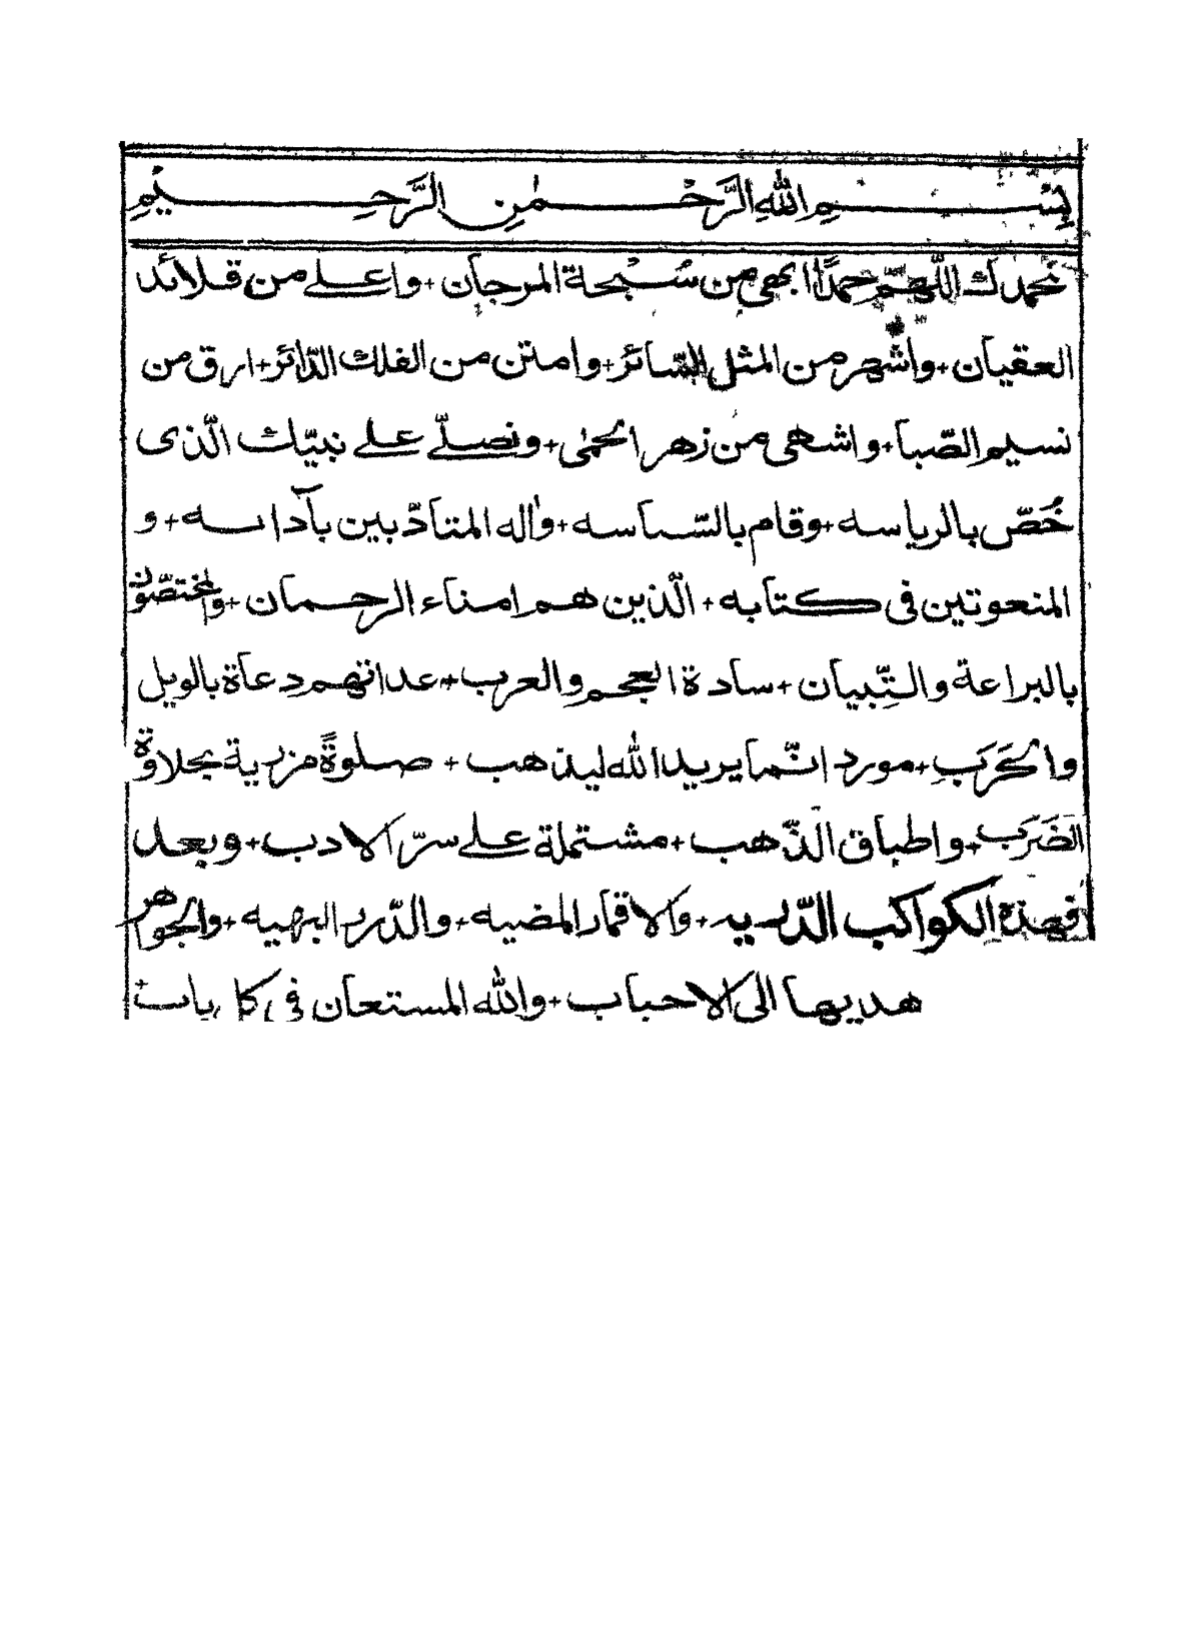 بِسْمِ اللهِ الرَّحْمٰنِ الرَّحِيْمِ
نحمدك اللّهمّ حمدًا ابهى من سُبْحة المرجان + واعلے من قلائد
العقيان + واشهر من المثل السّائر + وامتن من الفلك الدّائر + ارق من
نسيم الصّبا + واشهى من زهر الحمٰى + ونصلّے علے نبيّك الّذى
خُصّ بالرياسه + وقام بالسّياسه + واٰله المتأدّبين بآدابه + و
المنعوتين فى كتابه + الّذين هم امناء الرحمان + والمختصّون
بالبراعة والتِّبيان + سادة العجم والعرب + عداتهم دعاة بالويل
والحَرَبِ + مورد انّما يريد الله ليذهب + صلوةً مزرية بحلاوة
الضَرَب + واطباق الذّهب + مشتملة علے سرّ الادب + وبعد
فهذه الكواكب الدّريه + والاقمار المضيه + والدّرر البهيه + والجواهر
هديها الى الاحباب + والله المستعان فى كل باب +